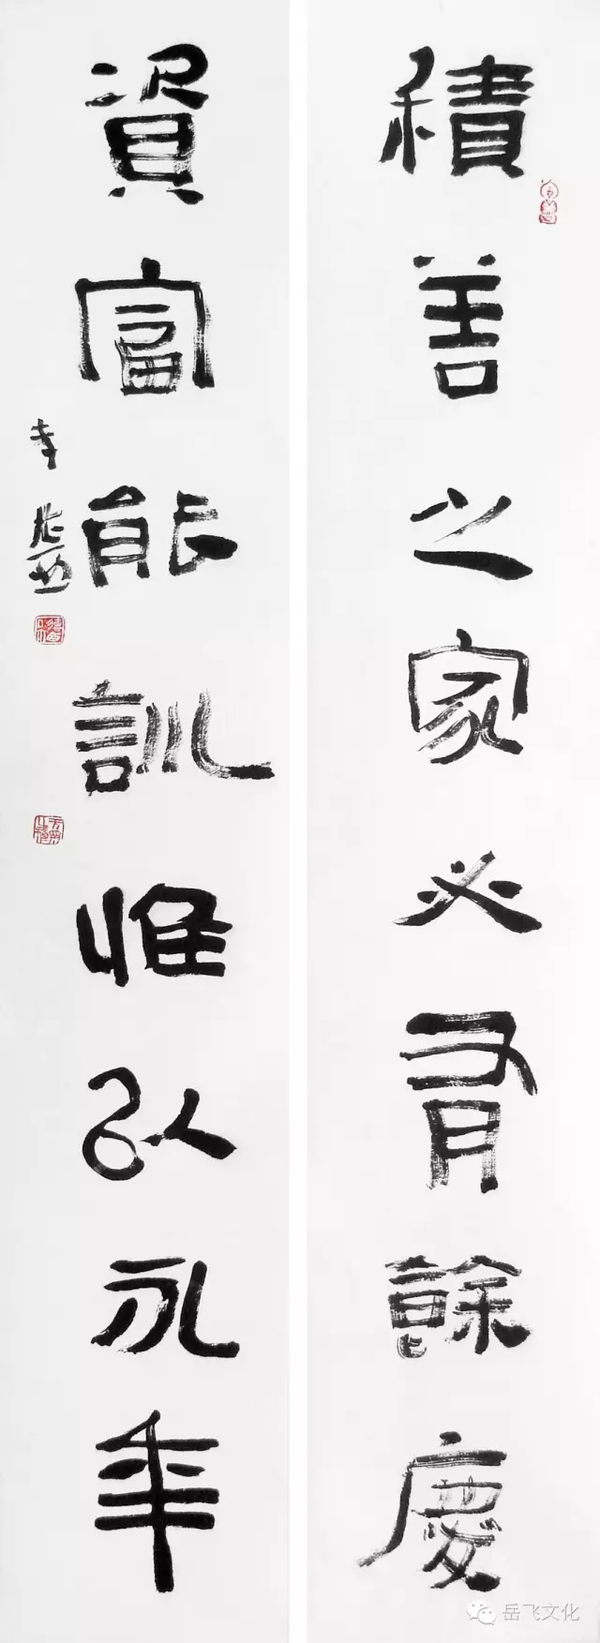 積善之家必有餘慶
資富能訓惟以永年
岳飞文化